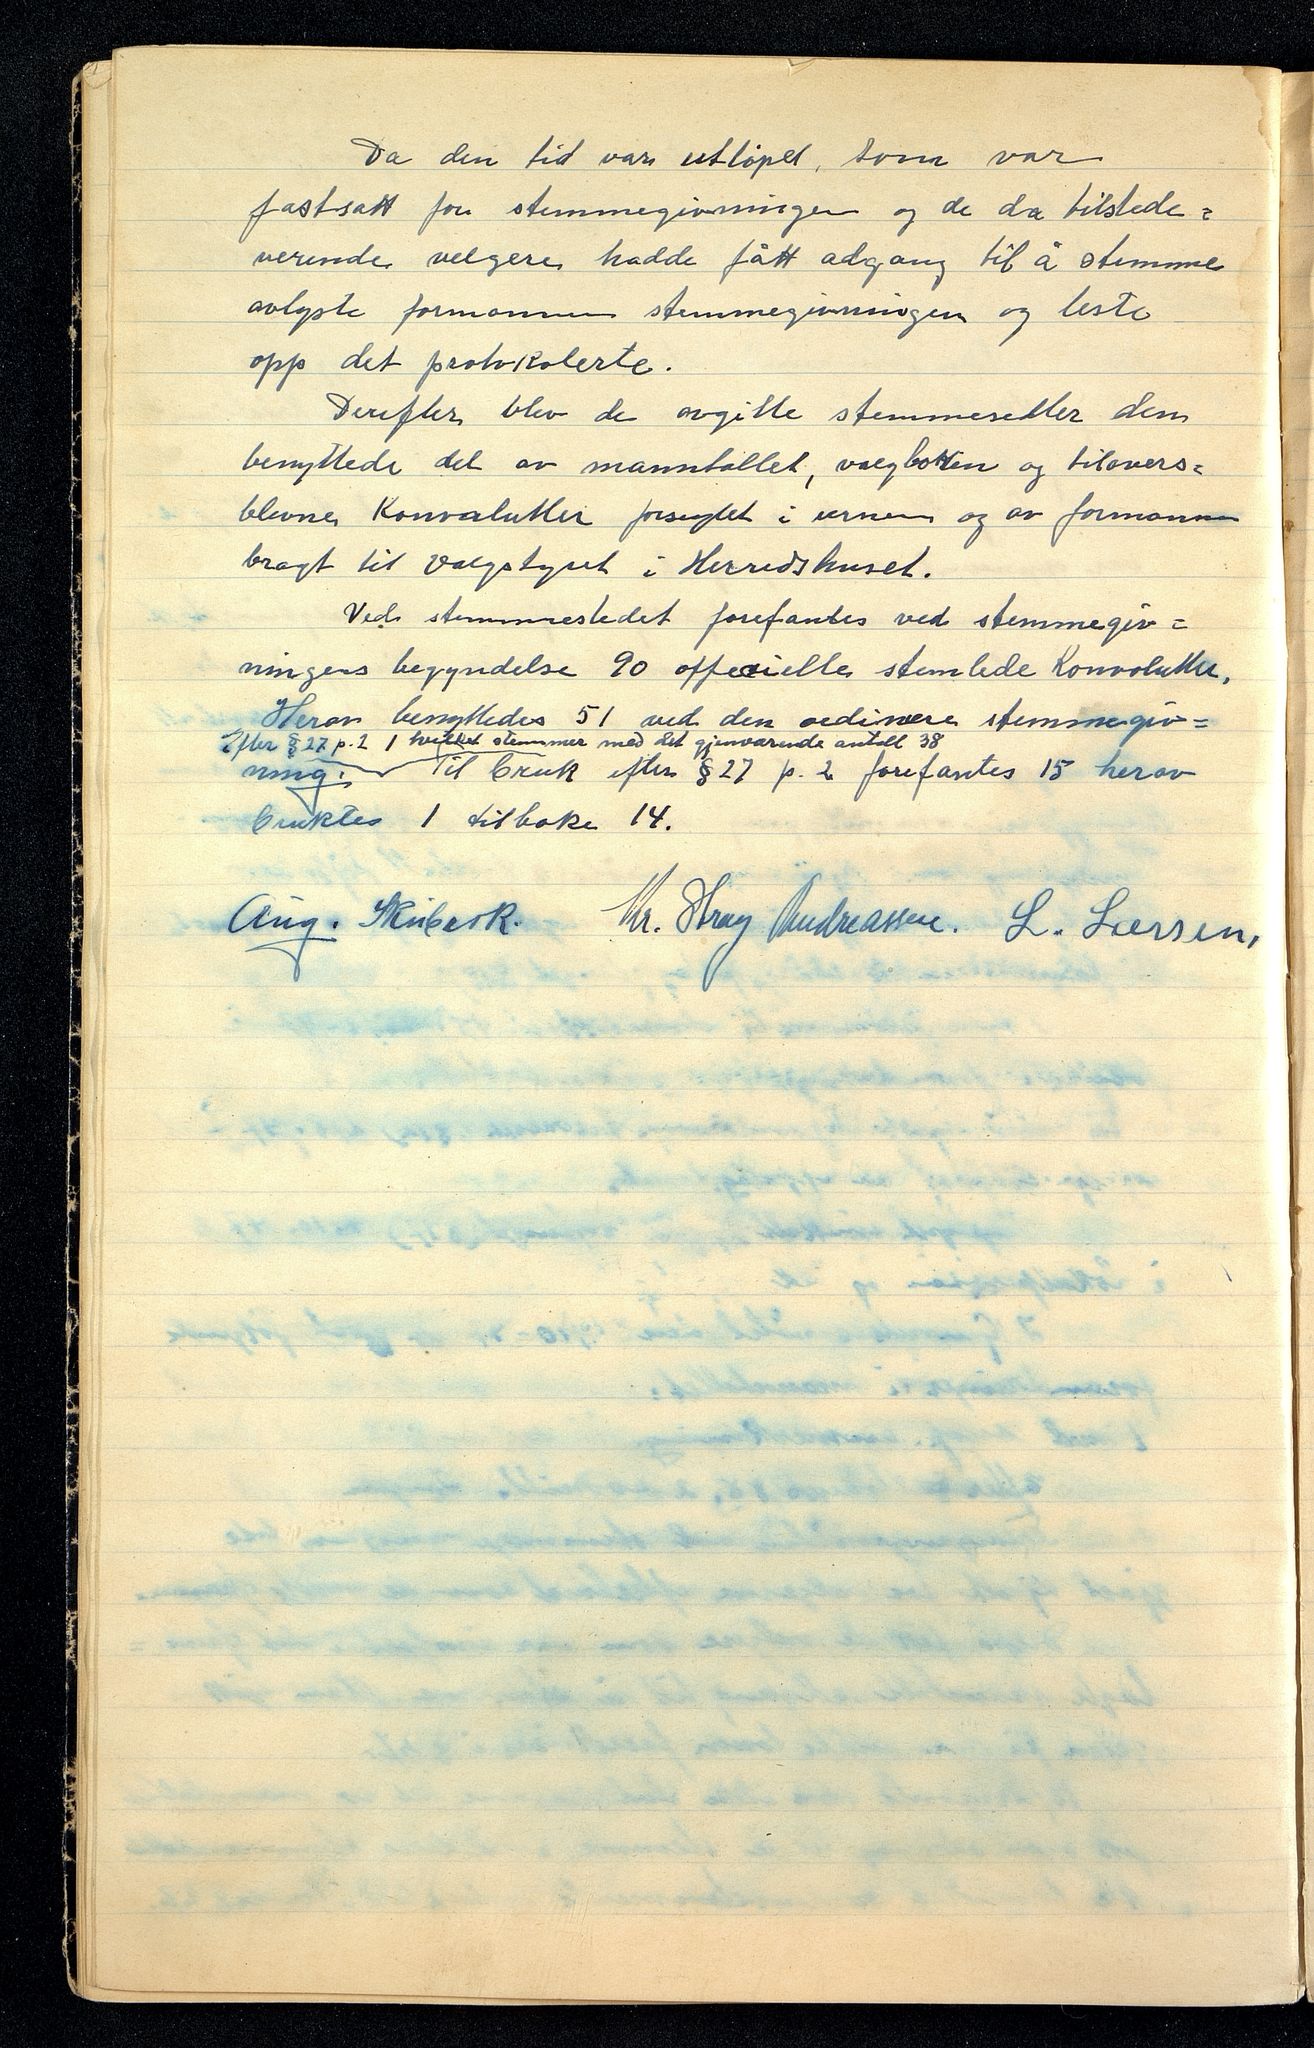 Da den tid var utløpet, som var
fastsatt for stemmegivningen og de da tilstede=
verende velgere hadde fått adgang til å stemme
avlyste formannen stemmegivningen og leste
opp det protokolerte.
Derefter blev de avgitte stemmesedler den
benyttede del av manntallet, valgboken og tilovers=
blevne Konvolutter forseglet i urnen og av formannen
bragt til valgstyret i Herredshuset.
Ved stemmestedet forefantes ved stemmegiv=
ningens begyndelse 90 offecielle stemlede Konvolutter.
Herav benyttedes 51 ved den ordinære stemmegiv=
Efter § 27 p. 2 1 hvilket stemmer med det gjenværende antall 38
ning. Til bruk efter § 27 p. 2 forefantes 15 herav
bruktes 1 tilbake 14.
Aug. Skubrok. Kr. Stray Andreassen. L. Larsen.